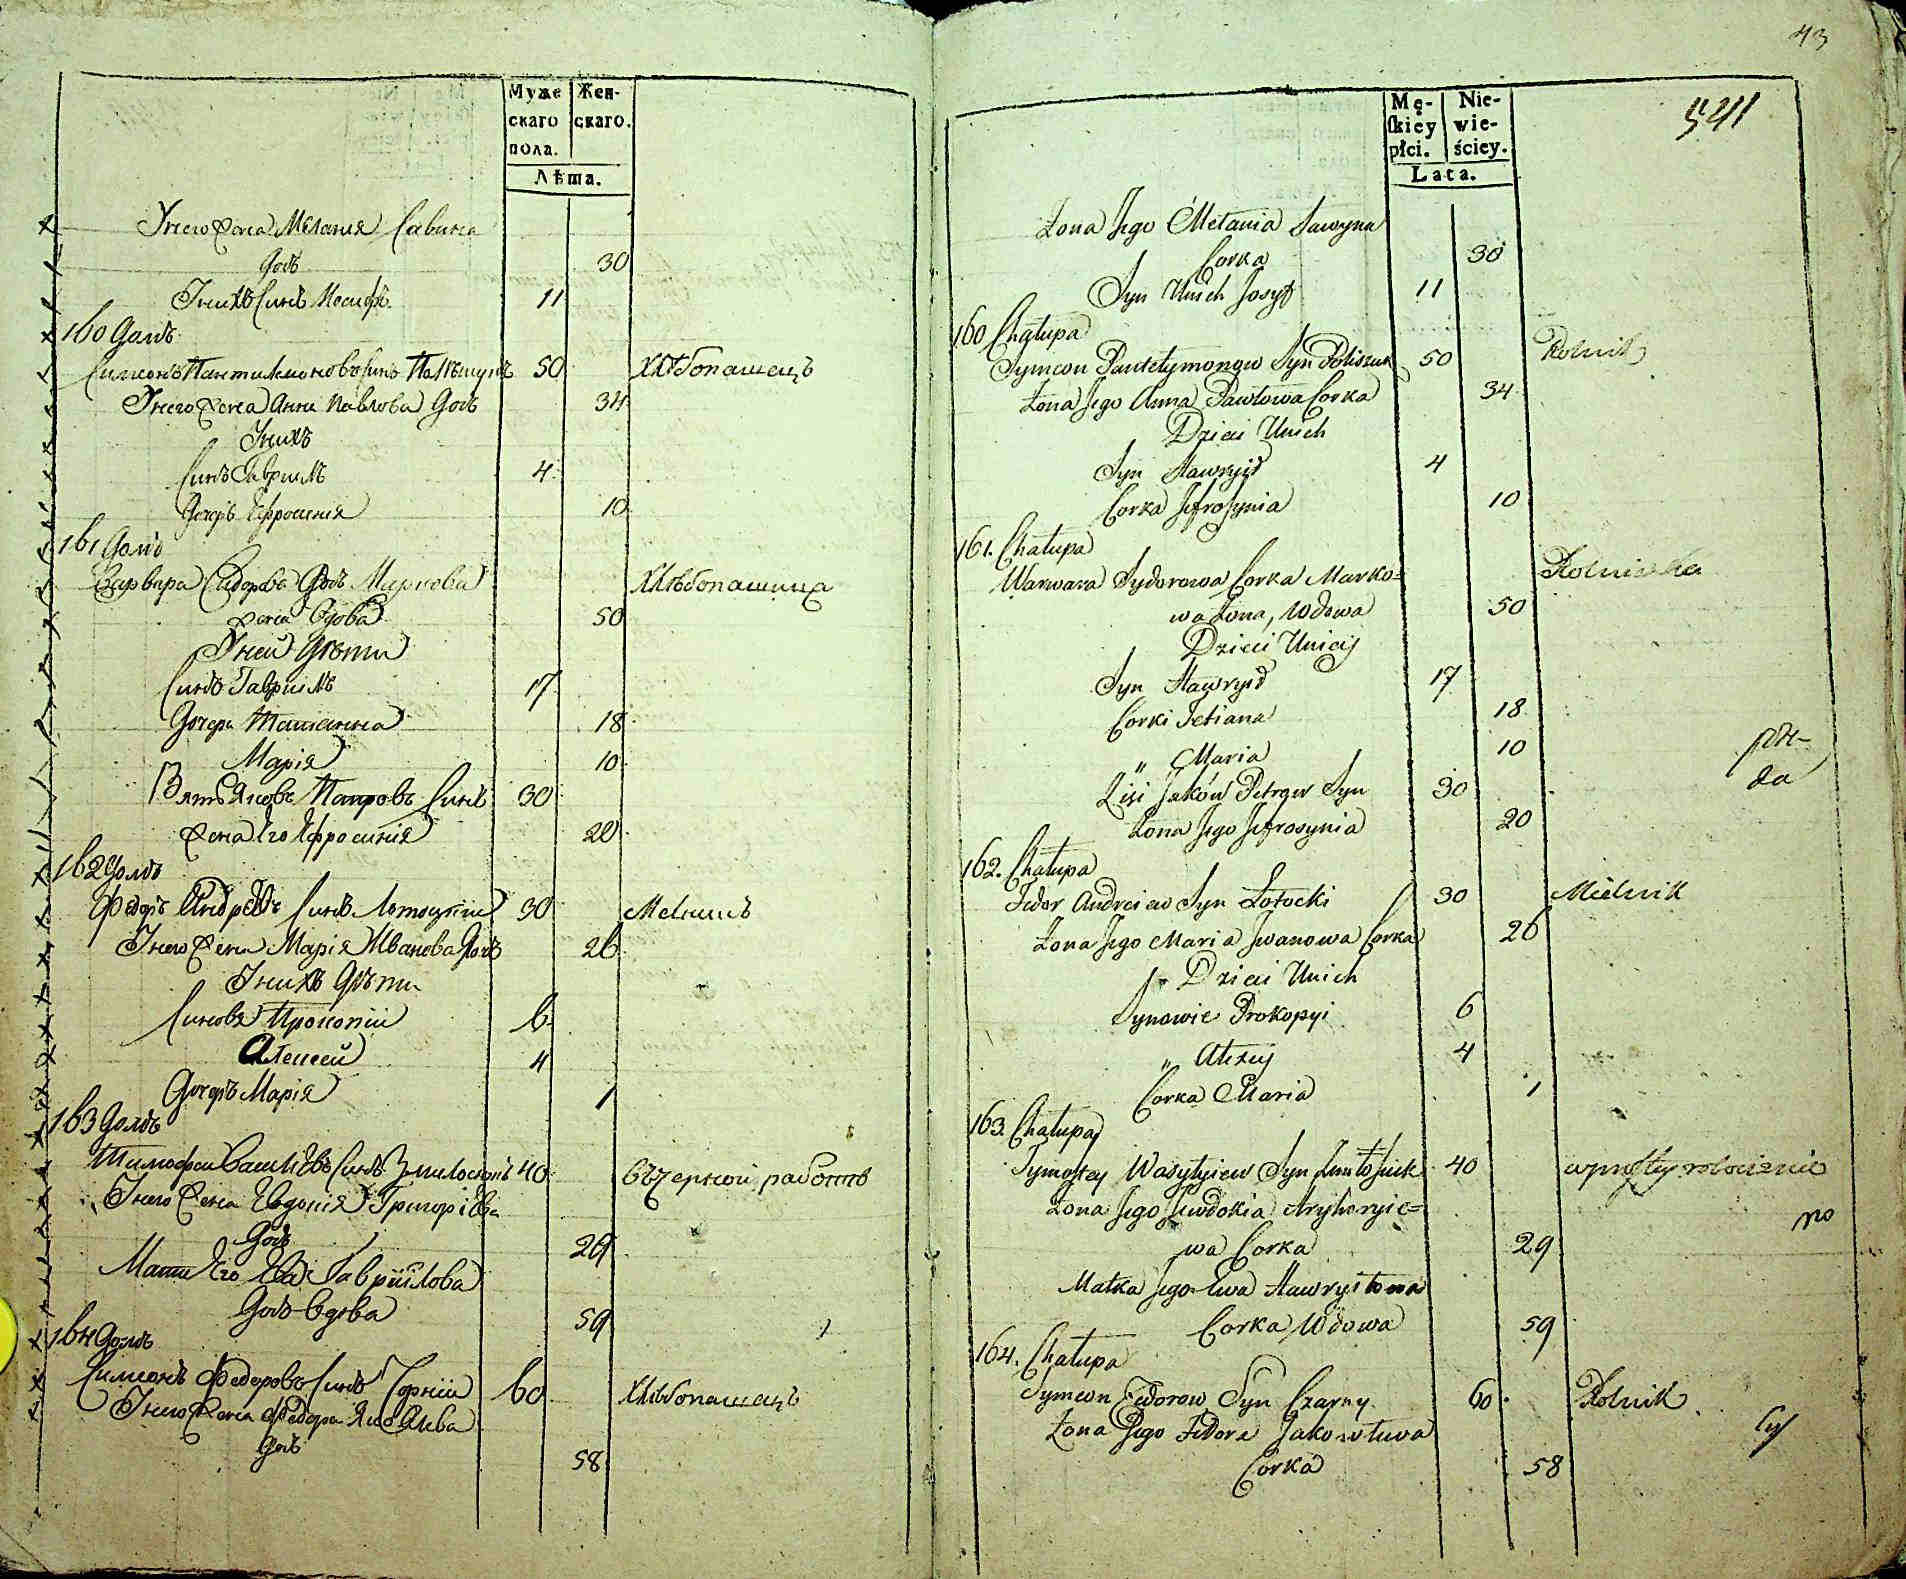 Муже Жен-
скаго скаго.
пола.
Лѣта.
Унего жена Мелания Савина
дочь 30
Унихъ синъ Иосифъ 11
160 Домъ
Симеонъ Пантилимоновъ синъ Полѣщукъ 50 Хлѣбопашецъ
Унего жена Анна Павлова дочь 34
Унихъ
Синъ Гаврıилъ 4
Дочерь Ефросиния 10
161 Домъ
Варвара Сидорова дочь Маркова Хлѣбопашица
жена вдова 50
Уней дѣти
Синъ Гаврıилъ 17
Дочери Татианна 18
Марія 10
Зять Яковъ Петровъ Синъ 30
жена Его Ефросинія 20
162 Домъ
Федоръ Андрѣевъ Синъ Лотоцкıй 30 Мелникъ
Унего жена Марія Иванова дочь 26
Унихъ дѣти
Синовя Прокопıй 6
Алексей 4
Дочерь Марія 1
163 Домъ
Тимофей Василıевъ Синъ 40 въ черной работѣ
Унего жена Евдокія Григоріева
дочь 29
Мати Его Ева Гаврıилова
дочь вдова 59
164 Домъ
Симеонъ Федоровъ Синъ Чорнıй 60 Хлѣбопашецъ
Унего жена Федора
дочь 58
43
541
Mę- Nie-
ſkiey wie-
płci. ściey.
Lata.
Żona Jego Mełania Sawyna
Corka 30
Syn Unich Josyf 11
160 Chałupa
Symeon Pantełymonow Syn Poliszuk 50 Rolnik
Żona Jego Anna Pawłowa Corka 34
Dzieci Unich
Syn Hawryił 4
Corka Jefrosynia 10
161. Chałupa
Warwara Sydorowa Corka Marko= Rolniczka
wa Żona, Wdowa 50
Dzieci Uniey
Syn Hawryił 17
Corki Tetiana 18
„ Maria 10
Zięć Jaków Petrow Syn 30
Żona Jego Jefrosynia 20
162. Chałupa
Fedor Andreiew Syn Łotocki 30 Mielnik
Żona Jego Maria Iwanowa Corka 26
Dzieci Unich
Synowie Prokopyi 6
„ Alexey 4
Corka Maria 1
163. Chałupa
Tymoftey Wasylyiew Syn 40
Żona Jego Jewdokia Hryhoryie=
wa Corka 29
Matka Jego Ewa Hawryiłowa
Corka Wdowa 59
164. Chałupa
Symeon Fedorow Syn Czarny 60 Rolnik
Żona Jego Fedora Jakowlewa
Corka 58